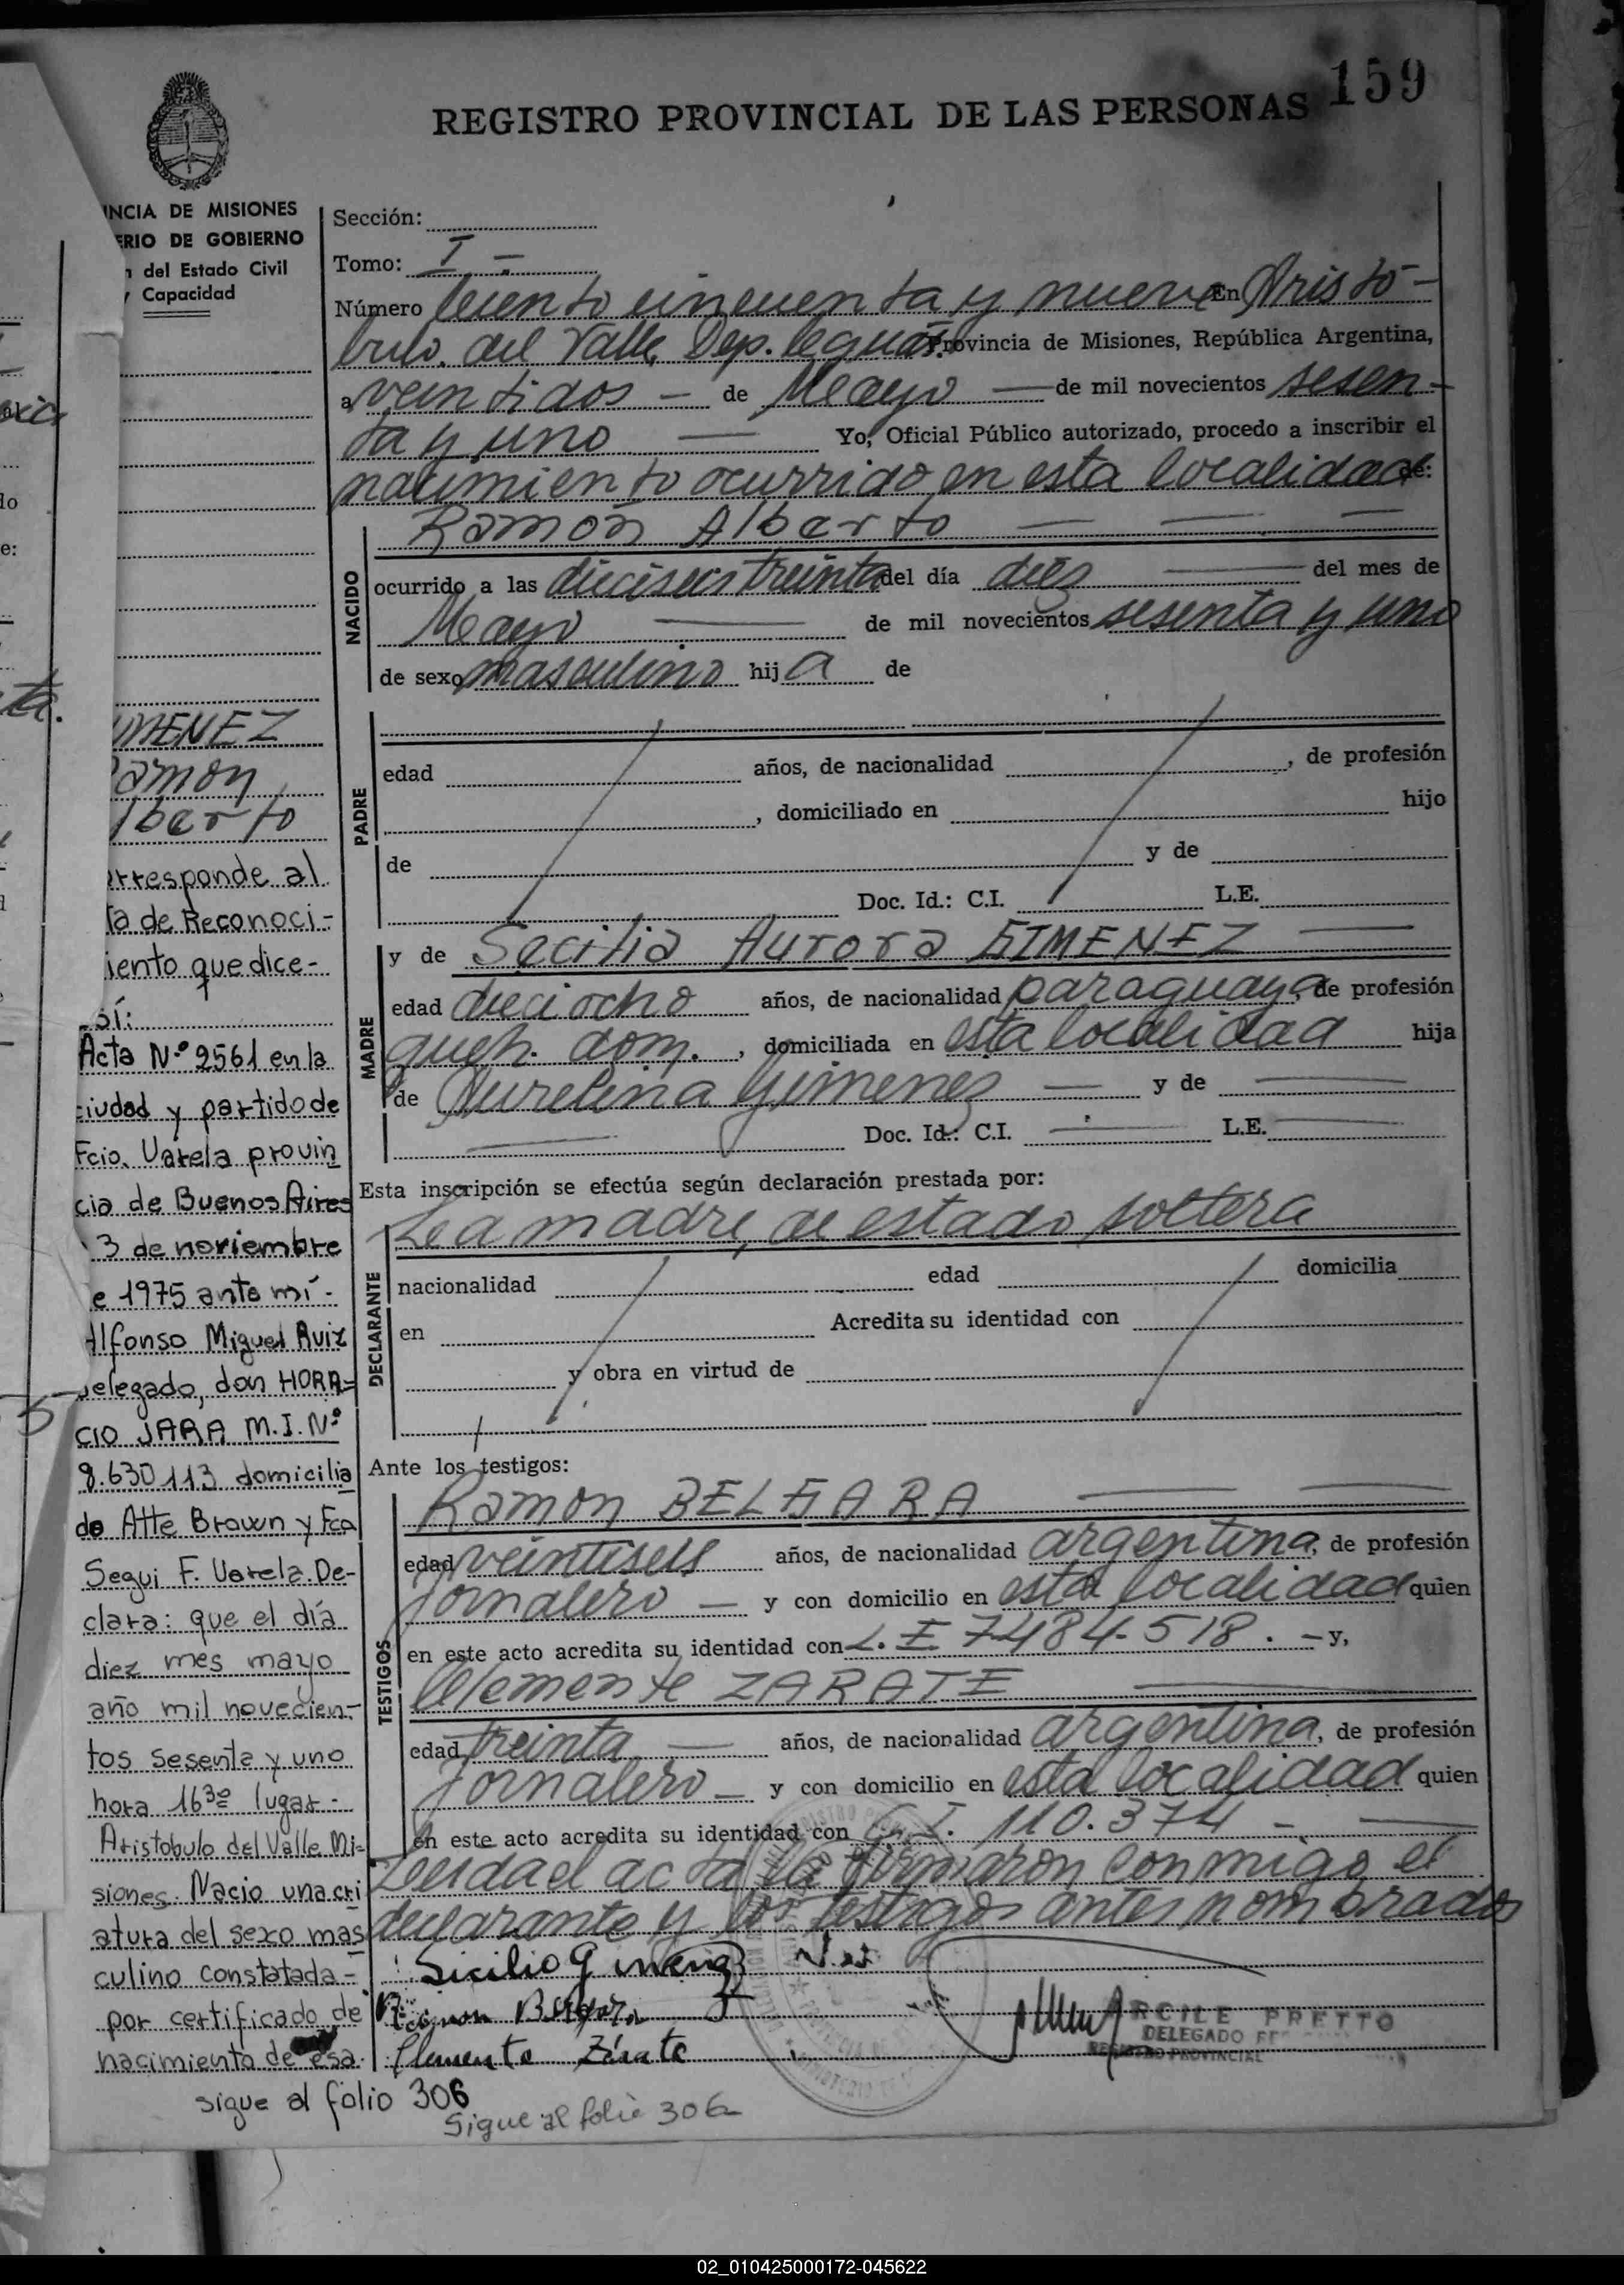 159
REGISTRO PROVINCIAL DE LAS PERSONAS
INCIA DE MISIONES
ERIO DE GOBIERNO
n del Estado Civil
y Capacidad
Sección:
Tomo: I -
Número Ciento cincuenta y nueve En Aristó-
bulo del Valle Dep. Cguás. Provincia de Misiones, República Argentina,
a veintidos - de Mayo — de mil novecientos sesen-
ta y uno — Yo, Oficial Público autorizado, procedo a inscribir el
nacimiento ocurrido en esta localidad de:
NACIDO
Ramón Alberto — — —
ocurrido a las dieciseis treinta del día diez — del mes de
Mayo — de mil novecientos sesenta y uno
de sexo masculino hij a de
PADRE
edad años, de nacionalidad , de profesión
, domiciliado en hijo
de y de
Doc. Id.: C.I. L.E.
MADRE
y de Secilia Aurora GIMENEZ —
edad dieciocho años, de nacionalidad paraguaya, de profesión
queh. dom. , domiciliada en esta localidad hija
de Aurelina Gimenez — y de —
— Doc. Id.: C.I. — L.E. —
Esta inscripción se efectúa según declaración prestada por:
DECLARANTE
La madre, de estado soltera
nacionalidad edad domicilia
en Acredita su identidad con
y obra en virtud de
Ante los testigos:
TESTIGOS
Ramon BELGARA — —
edad veintiseis años, de nacionalidad argentina, de profesión
jornalero — y con domicilio en esta localidad quien
en este acto acredita su identidad con L. E 7484.518. - y,
Clemente ZARATE —
edad treinta — años, de nacionalidad argentina, de profesión
jornalero - y con domicilio en esta localidad quien
en este acto acredita su identidad con C. I. 110.374 - —
Leida el acta la firmaron conmigo el
declarante y los testigos antes nombrados
Clemente Zárate
ARCILE PRETTO
DELEGADO
REGISTRO PROVINCIAL
IMENEZ
Ramon
lberto
orresponde al
ta de Reconoci-
iento que dice-
sí:
Acta N.º 2561 en la
ciudad y partido de
Fcio. Varela provin
cia de Buenos Aires
3 de noviembre
e 1975 ante mí-
Alfonso Miguel Ruiz
delegado, don HORA-
CIO JARA M.I.Nº
8.630.113 domicilia
do Atte Brown y Fco
Segui F. Varela. De-
clara: que el día
diez mes mayo
año mil novecien-
tos sesenta y uno
hora 16 30 lugar-
Aristobulo del Valle Mi-
siones. Nacio una cri
atura del sexo mas
culino constatada-
por certificado de
nacimiento de esa.
sigue al folio 306
Sigue al folio 306
02_010425000172-045622